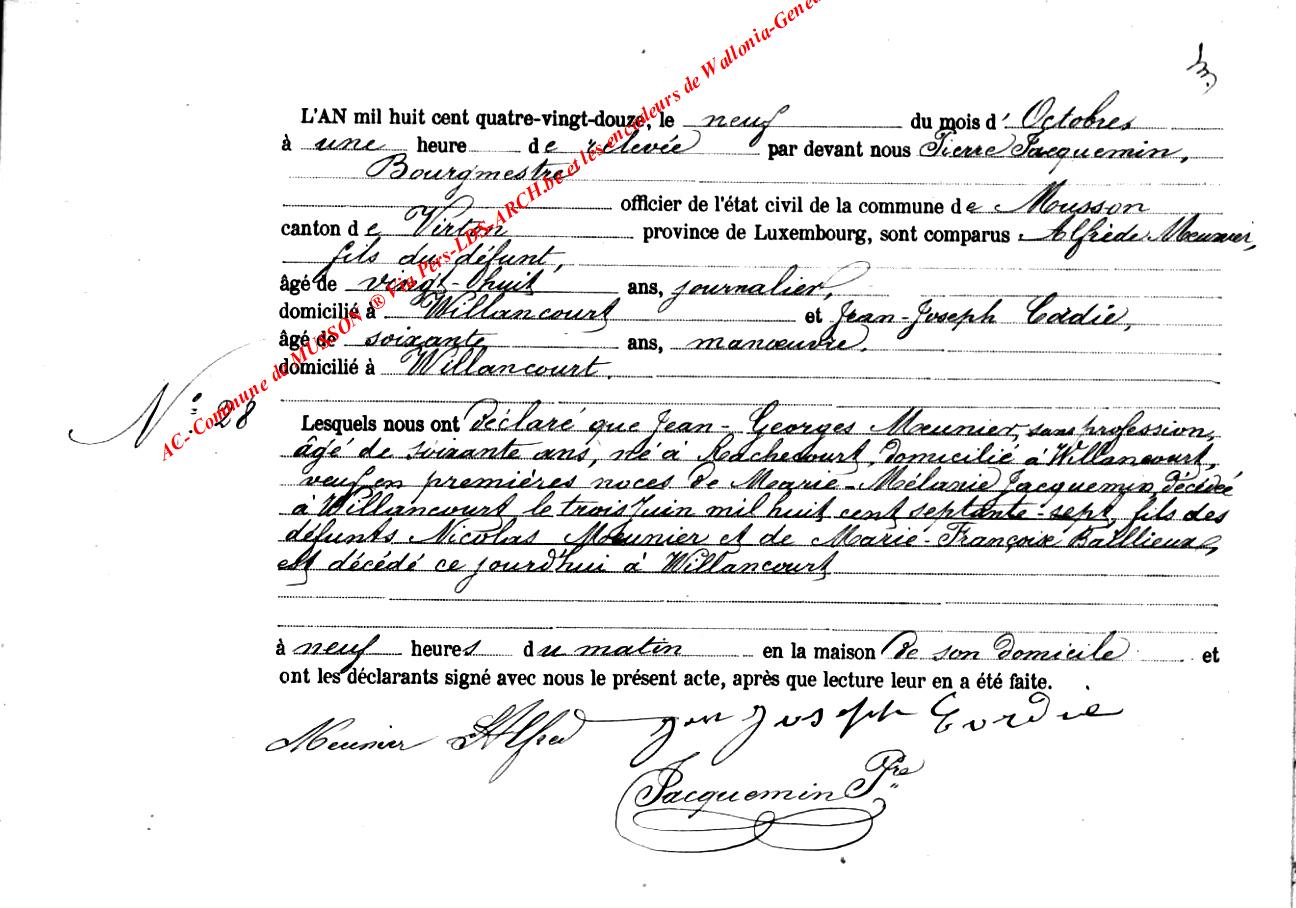 L'AN mil huit cent quatre-vingt-douze, le neuf du mois d'Octobres
à une heure de relevée par devant nous Pierre Jacquemin,
Bourgmestre
officier de l'état civil de la commune de Musson
canton de Virton province de Luxembourg, sont comparus Alfrède Meunier,
fils du défunt,
âgé de vingt-huit ans, journalier,
domicilié à Willancourt et Jean-Joseph
âgé de soixante ans, manœuvre,
domicilié à Willancourt.
N° 28
Lesquels nous ont déclaré que Jean-Georges Meunier, sans profession,
âgé de soixante ans, né à Rachecourt, domicilié à Willancourt,
veuf en premières noces de Marie-Mélanie Jacquemin, décédée
à Willancourt le trois Juin mil huit cent septante-sept, fils des
défunts Nicolas Meunier et de Marie-Françoise
est décédé ce jourd'hui à Willancourt
à neuf heures du matin en la maison de son domicile et
ont les déclarants signé avec nous le présent acte, après que lecture leur en a été faite.
Meunier Alfred Joseph
Jacquemin Pre
AC-Commune de MUSSON ® Via Pers-LDS-ARCH.be et les encodeurs de Wallonia-Genea